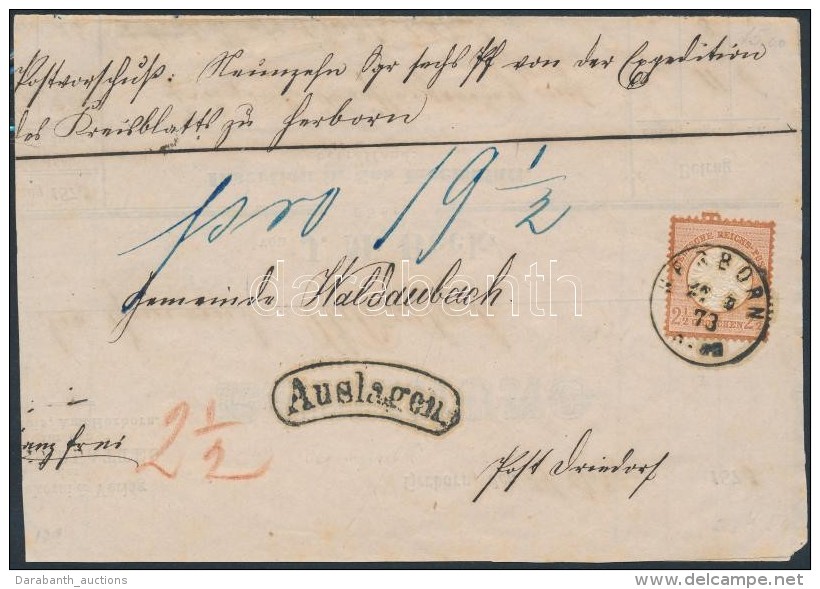 Postvorschuß: Neunzehn Sgr sechs Pf von der Expedition
des Kreisblatts zu Herborn
pro 19 1/2
Gemeinde Waldaubach
HERBORN
73
2½ GROSCHEN 2½
Auslagen
ganz frei
2 1/2
Post Driedorf
Darabanth_auctions
delcampe.net